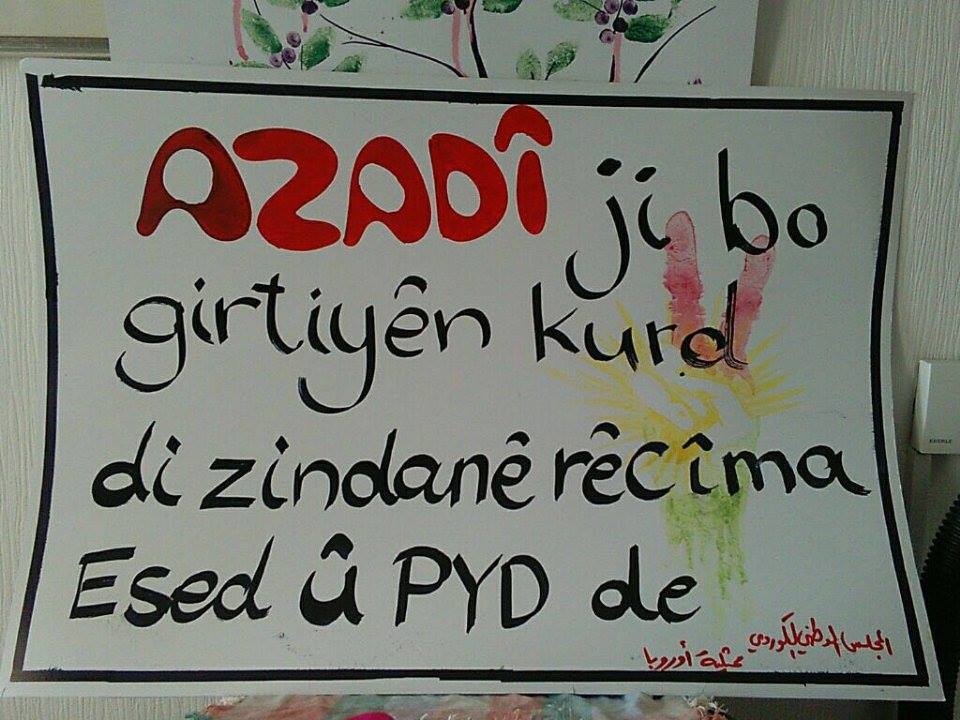 AZADÎ ji bo
girtiyên kurd
di zindanê rêcîma
Esed û PYD de
المجلس الوطني الكوردي
ممثلية أوروبا
EBERLE